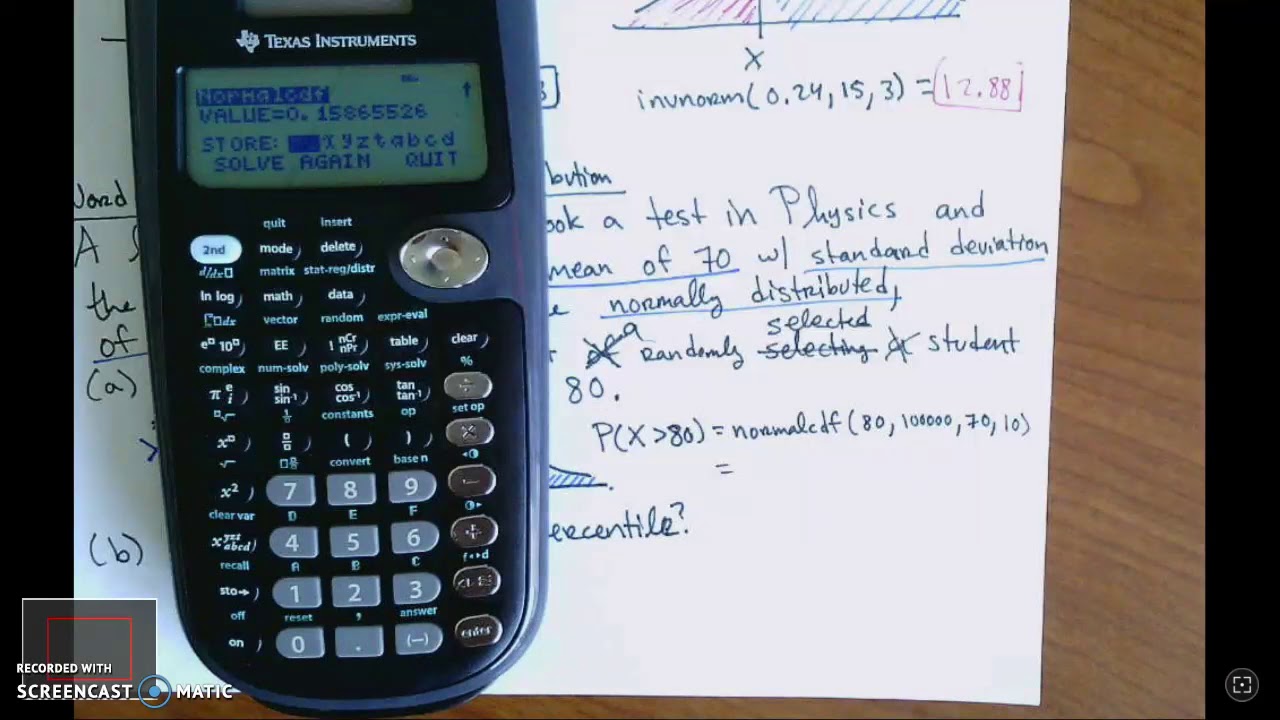 TEXAS INSTRUMENTS
Normalcdf
VALUE=0.15865526
STORE: x y z t a b c d
SOLVE AGAIN QUIT
X
invnorm(0.24, 15, 3) = 12.88
Word
bution
A
ook a test in Physics and
mean of 70 w/ standard deviation
the
normally distributed,
of
a Randomly selected selecting student
(a)
80.
P(X>80) = normalcdf (80, 100000, 70, 10)
=
(b)
ercentile?
quit insert
2nd mode delete
matrix stat-reg/distr
ln log math data
vector random expr-eval
EE nCr nPr table clear
complex num-solv poly-solv sys-solv %
π e i sin sin-1 cos cos-1 tan tan-1 ÷
constants op set op
( ) ×
convert base n
x² 7 8 9 −
clear var D E F
x yzt abcd 4 5 6 +
recall A B C f◂▸d
sto→ 1 2 3
off reset , answer
on 0 . (−) enter
RECORDED WITH
SCREENCAST MATIC